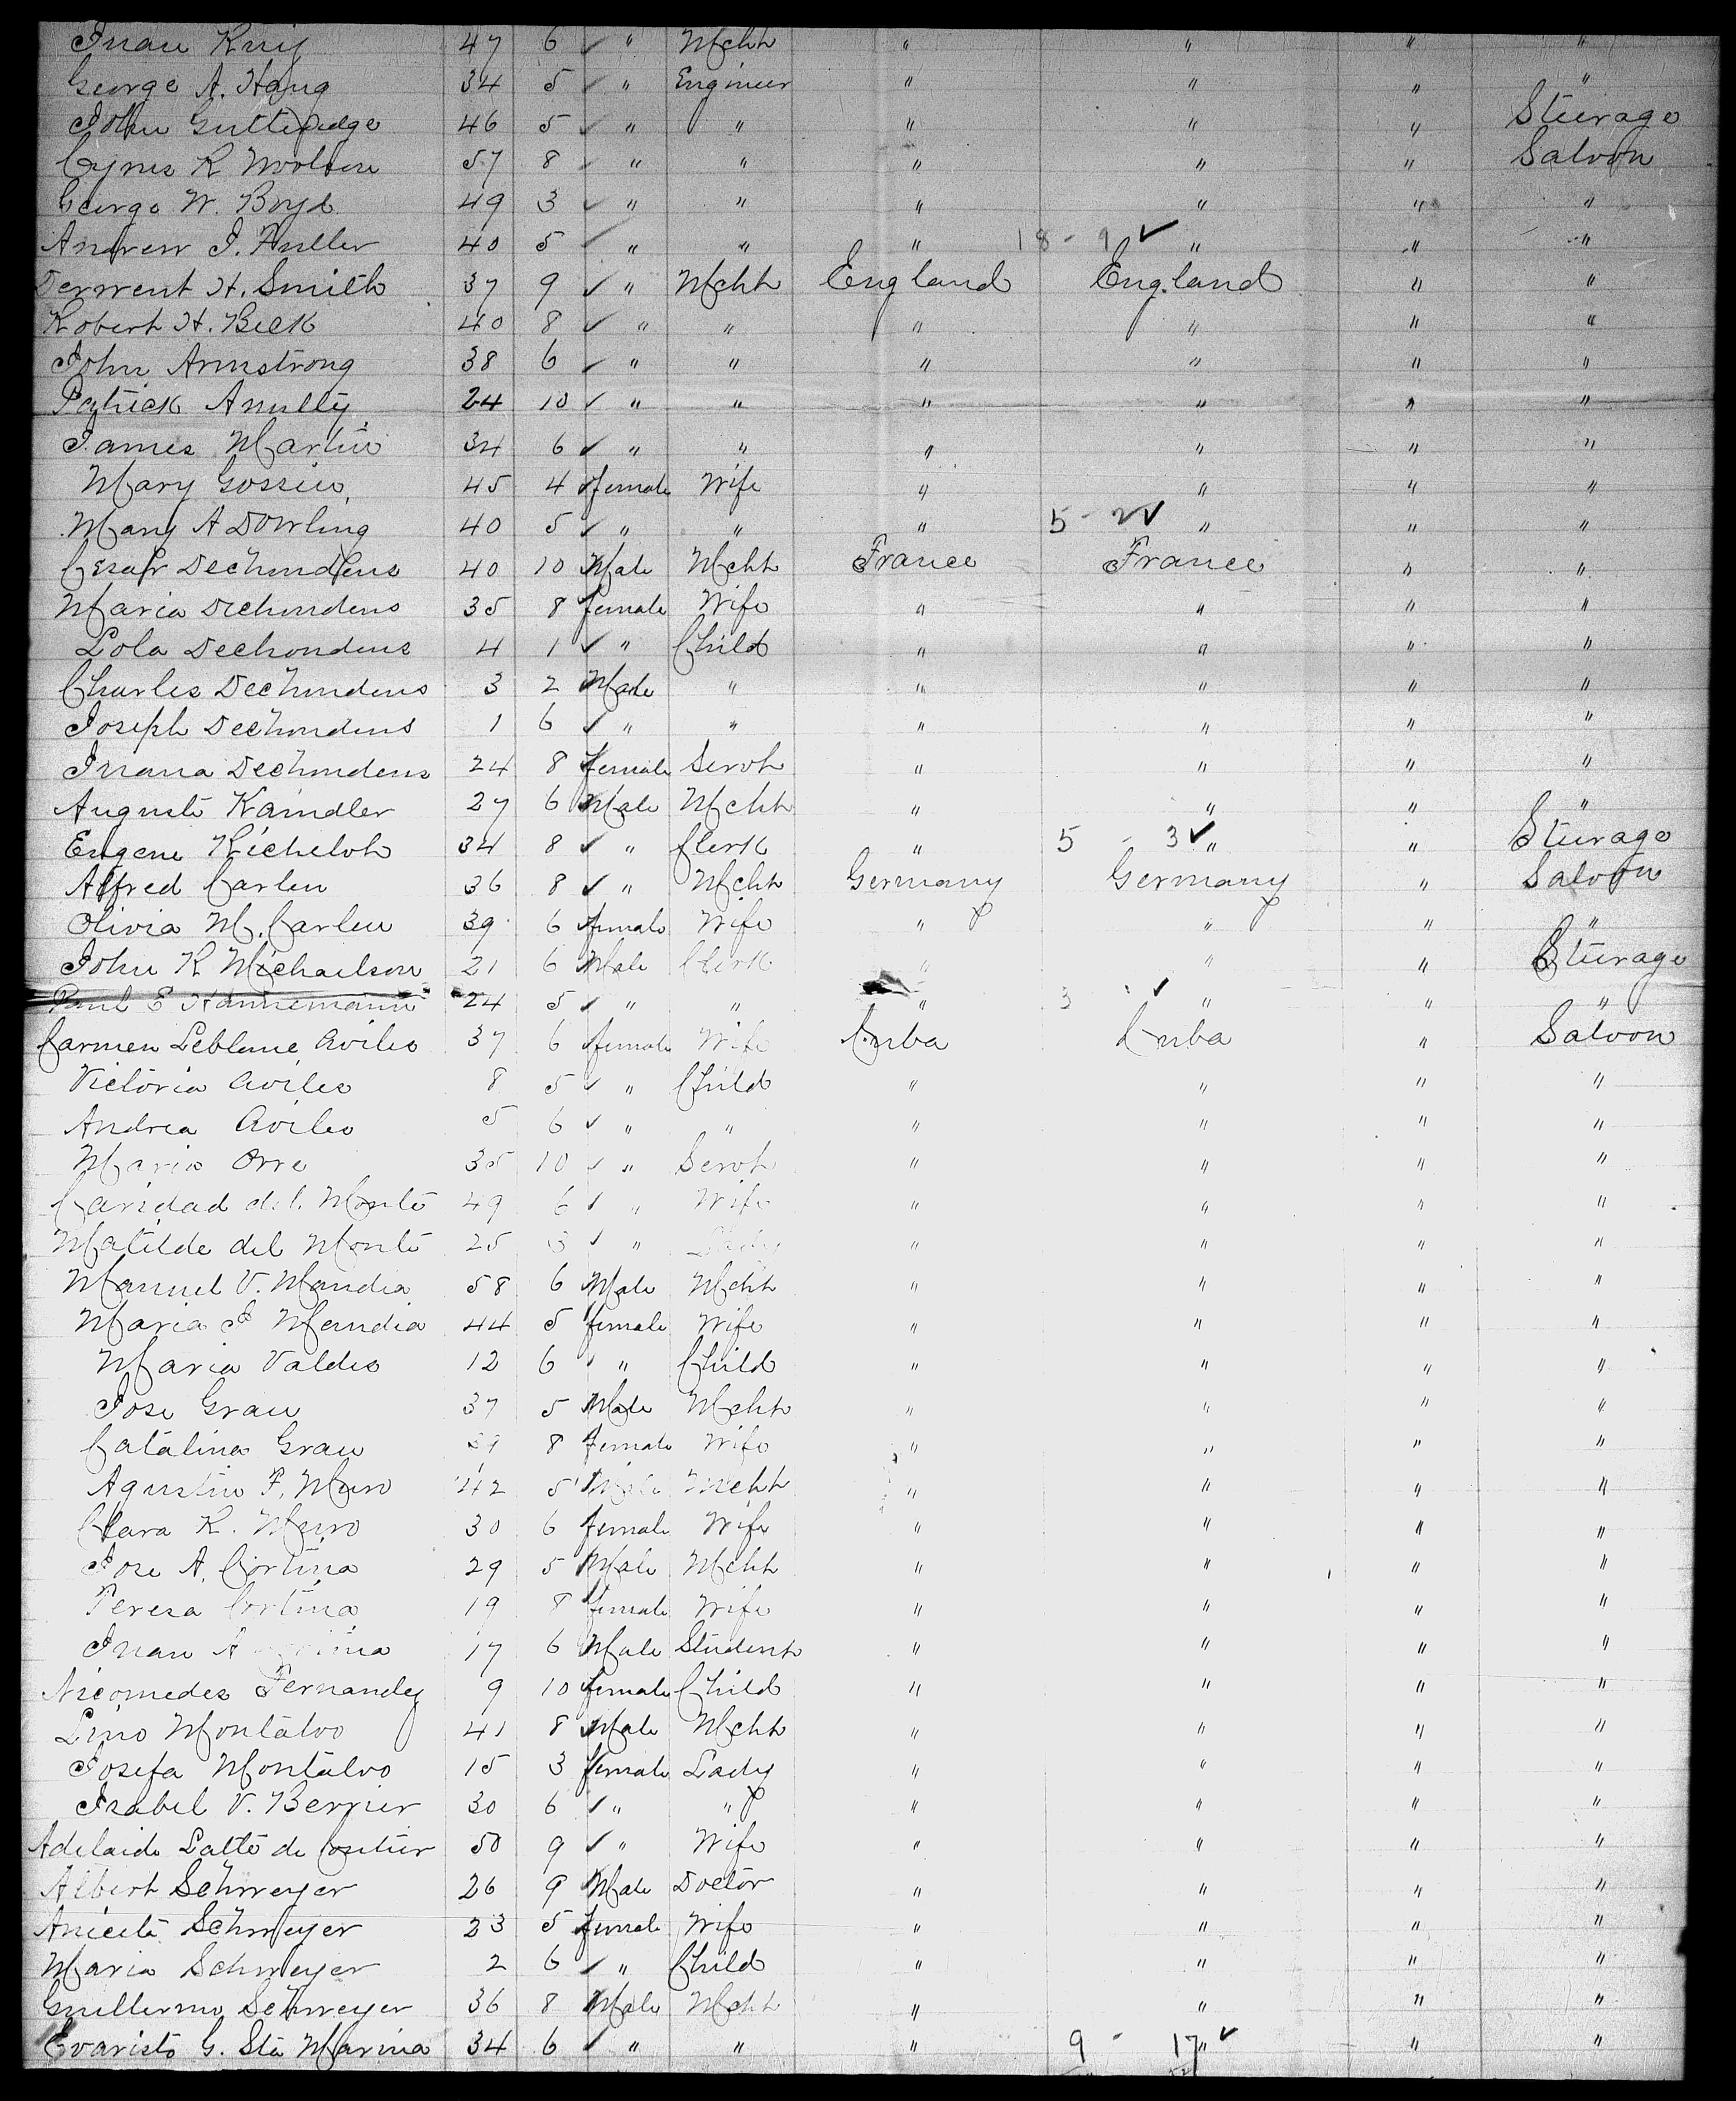 Juan Ruiz 47 6 ✓ " Mcht " " " "
George A. Haug 34 5 ✓ " Engineer " " " "
John Gutteridge 46 5 ✓ " " " " " Steerage
Cyrus R Woolsen 57 8 ✓ " " " " " Saloon
George W. Boyd 49 3 ✓ " " " " " "
Andrew J. Fuller 40 5 ✓ " " " 18 - 9 ✓ " " "
Derwent H. Smith 37 9 ✓ " Mcht England England " "
Robert H. Beck 40 8 ✓ " " " " " "
John Armstrong 38 6 ✓ " " " " " "
Patrick Anully 24 10 ✓ " " " " " "
James Martin 34 6 ✓ " " " " " "
Mary Gossin 45 4 female Wife " " " "
Mary A Dowling 40 5 ✓ " " " 5 - 2 ✓ " " "
Cesar Dechondens 40 10 Male Mcht France France " "
Maria Dechondens 35 8 female Wife " " " "
Lola Dechondens 4 1 ✓ " Child " " " "
Charles Dechondens 3 2 Male " " " " "
Joseph Dechondens 1 6 ✓ " " " " " "
Juana Dechondens 24 8 female Servt " " " "
Auguste Kaindler 27 6 Male Mcht " " " "
Eugene Richelot 34 8 ✓ " Clerk " 5 - 3 ✓ " " Steerage
Alfred Carlen 36 8 ✓ " Mcht Germany Germany " Saloon
Olivia M. Carlen 39 6 female Wife " " " "
John R Michaelson 21 6 Male Clerk " " " Steerage
Paul E Hannemann 24 5 ✓ " " " 3 - ✓ " " "
Carmen Leblanc Aviles 37 6 female Wife Cuba Cuba " Saloon
Victoria Aviles 8 5 ✓ " Child " " " "
Andrea Aviles 5 6 ✓ " " " " " "
Maria Orre 35 10 ✓ " Servt " " " "
Caridad del Monte 49 6 ✓ " Wife " " " "
Matilde del Monte 25 3 ✓ " Lady " " " "
Manuel V. Mandia 58 6 Male Mcht " " " "
Maria J Mandia 44 5 female Wife " " " "
Maria Valdes 12 6 ✓ " Child " " " "
Jose Grau 37 5 Male Mcht " " " "
Catalina Grau 29 8 female Wife " " " "
Agustin F. Muro 42 5 Male Mcht " " " "
Clara R. Muro 30 6 female Wife " " " "
Jose A. Cortina 29 5 Male Mcht " " " "
Teresa Cortina 19 8 female Wife " " " "
Juan A 17 6 Male Student " " " "
Nicomedes Fernandez 9 10 female Child " " " "
Lino Montalvo 41 8 Male Mcht " " " "
Josefa Montalvo 15 3 female Lady " " " "
Isabel V. Berrier 30 6 ✓ " " " " " "
Adelaide Latté de 50 9 ✓ " Wife " " " "
Albert Schweyer 26 9 Male Doctor " " " "
Aniceta Schweyer 23 5 female Wife " " " "
Maria Schweyer 2 6 ✓ " Child " " " "
Guillermo Schweyer 36 8 Male Mcht " " " "
Evaristo G. Sta Marina 34 6 ✓ " " " 9 - 17 ✓ " " "